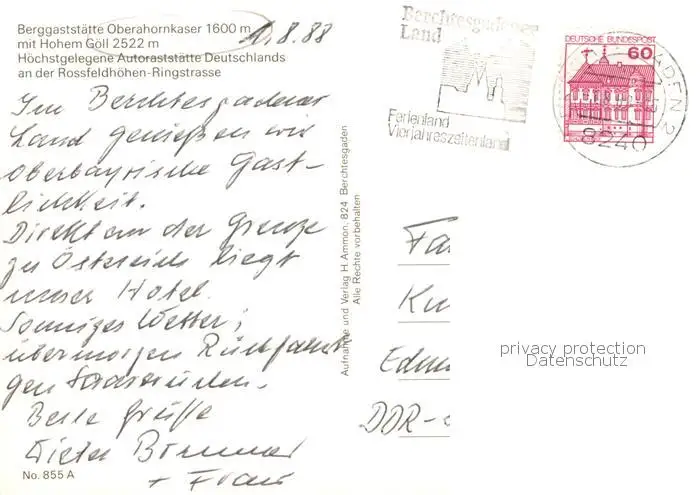 Berggaststätte Oberahornkaser 1600 m
mit Hohem Göll 2522 m
Höchstgelegene Autoraststätte Deutschlands
an der Rossfeldhöhen-Ringstrasse
1.8.88
Im Berchtesgadener
Land genießen wir
Oberbayrische Gast-
lichkeit.
Direkt an der Grenze
zu Österreich liegt
unser Hotel.
Sonniges Wetter;
übermorgen Rückfahrt
gen Saarbrücken.
Beste Grüße
Dieter
+ Frau
No. 855 A
Aufnahme und Verlag H. Ammon. 824 Berchtesgaden
Alle Rechte vorbehalten
Berchtesgadener
Land
Ferienland
Vierjahreszeitenland
DEUTSCHE BUNDESPOST
60
GADEN 2
8240
Fa
Ku
Edm
DDR-
privacy protection
Datenschutz